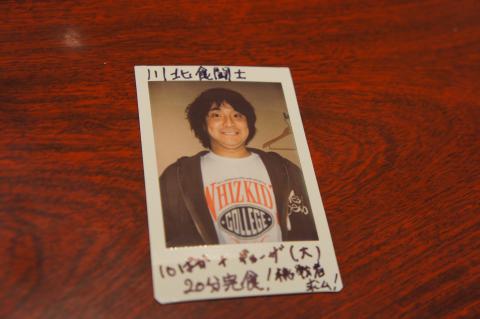 川北食闘士
WHIZKID
COLLEGE
10ばか + ギョーザ (大)
20分完食! 挑戦者
求ム!